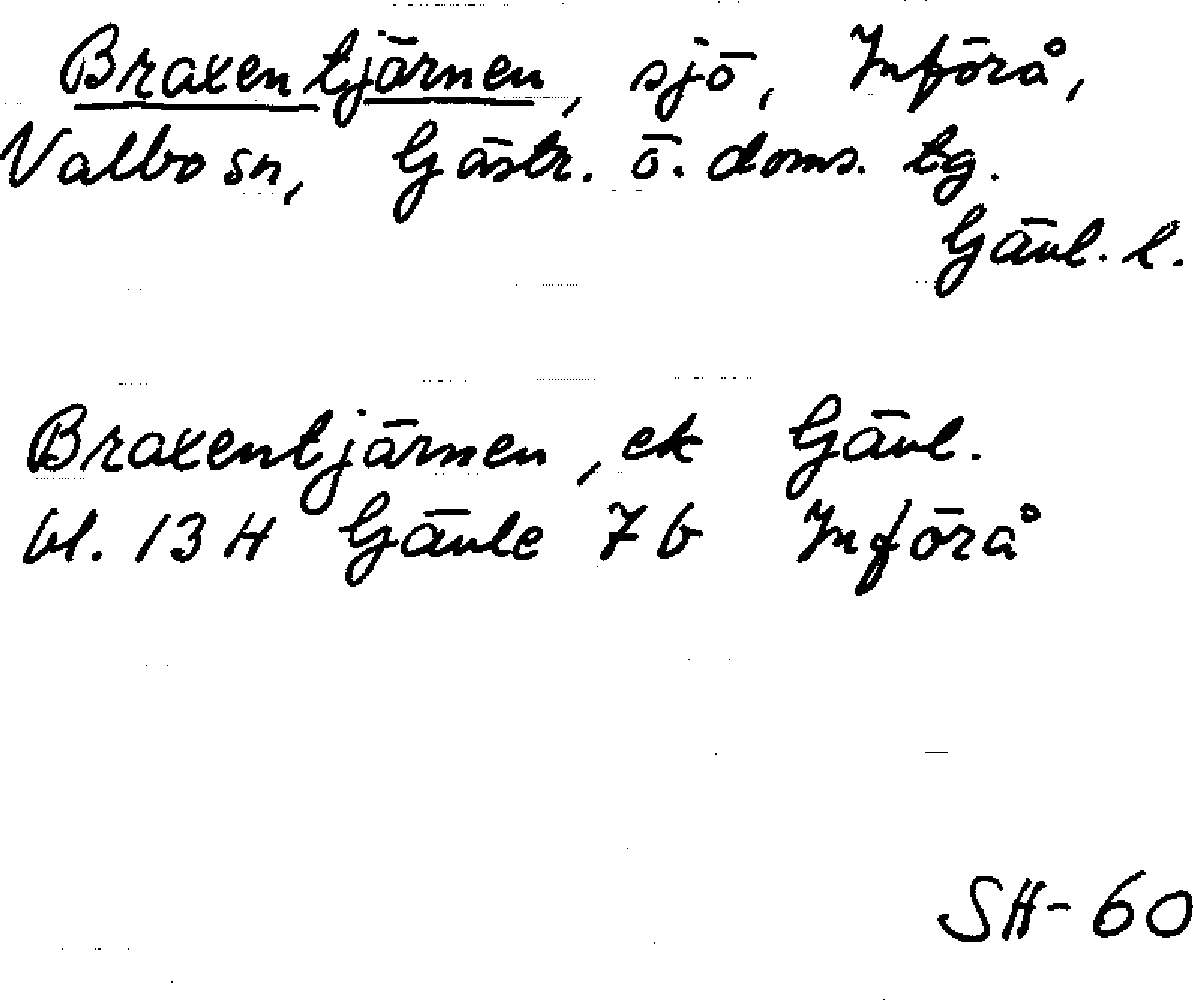 Braxentjärnen, sjö, Införå,
Valbo sn, Gästr. ö. doms. tg.
Gävl. l.
Braxentjärnen, ek Gävl.
bl. 13 H Gävle 7b Införå
SH-60